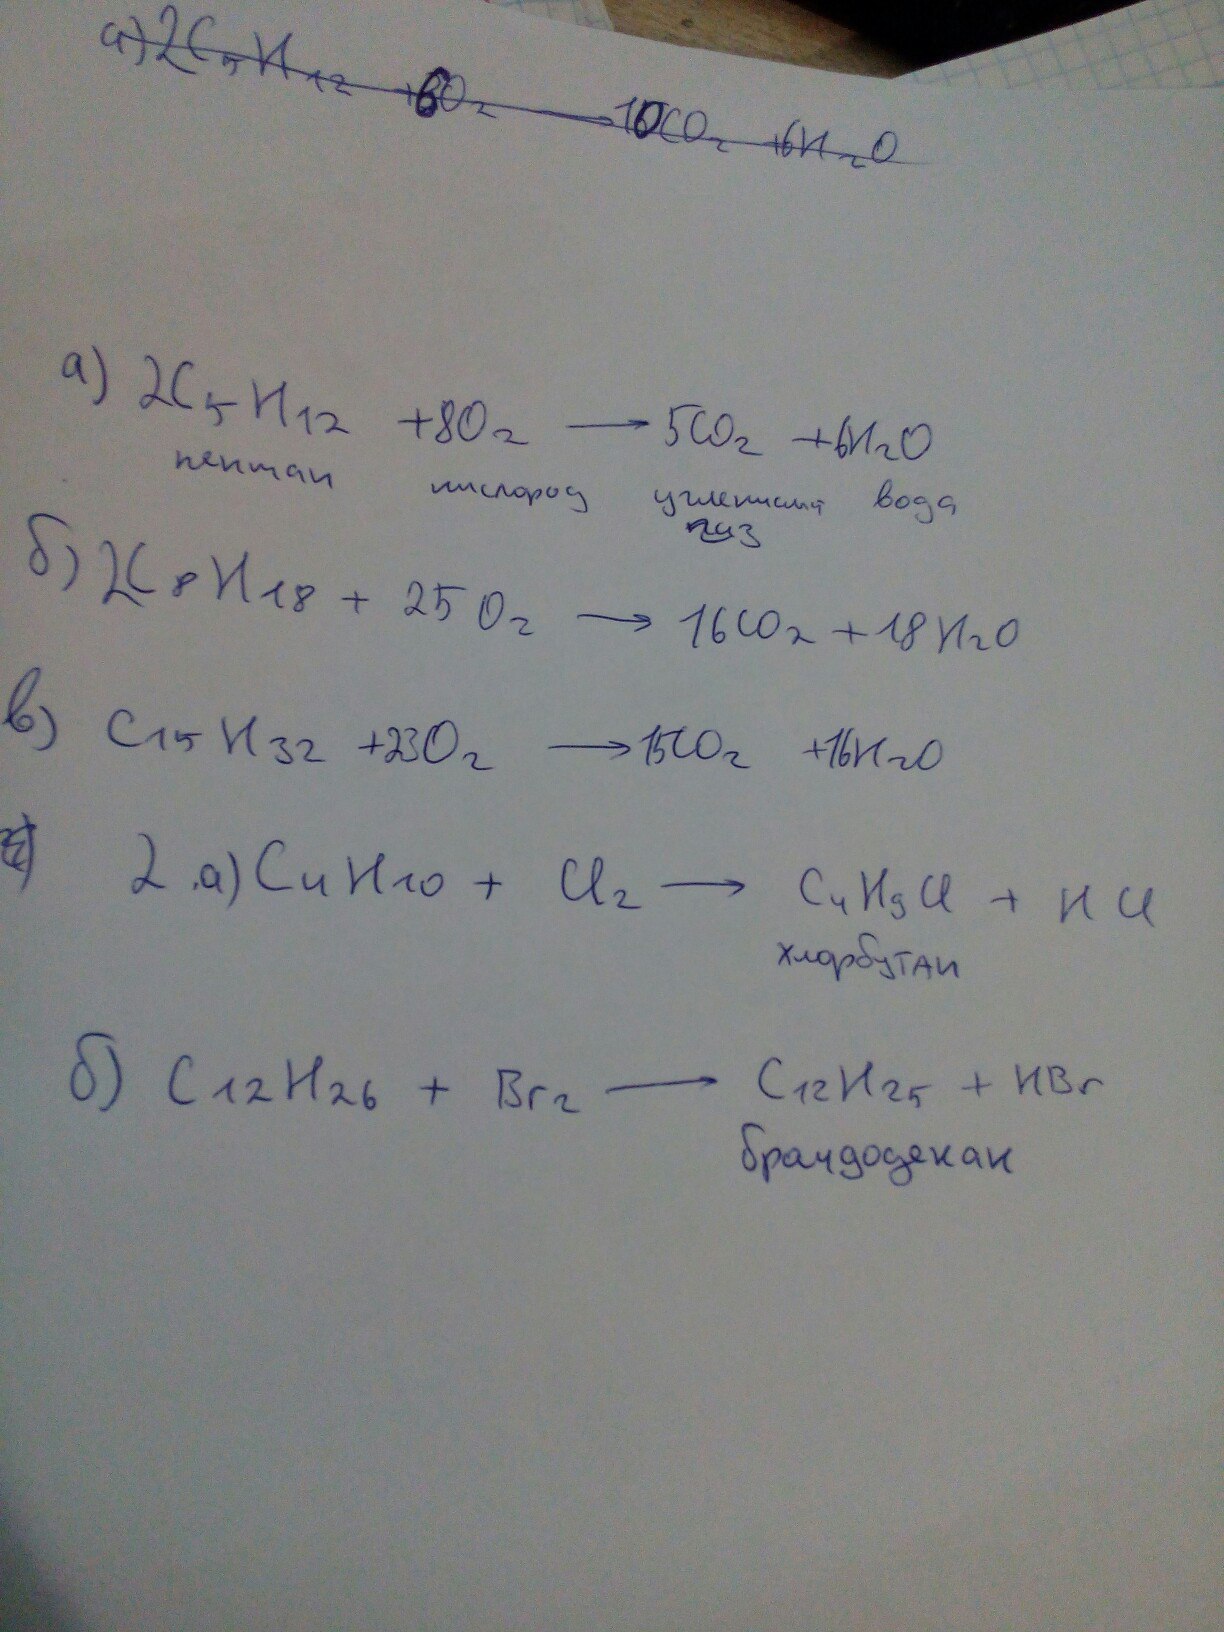 а) 2C₅H₁₂ + 6O₂ → 10CO₂ + 6H₂O
а) 2C₅H₁₂ +8O₂ → 5CO₂ +6H₂O
пентан кислород углекислый вода
газ
б) 2C₈H₁₈ + 25O₂ → 16CO₂ + 18H₂O
в) C₁₅H₃₂ +23O₂ → 15CO₂ +16H₂O
2.а) C₄H₁₀ + Cl₂ → C₄H₉Cl + HCl
хлорбутан
б) C₁₂H₂₆ + Br₂ → C₁₂H₂₅ + HBr
бромдодекан